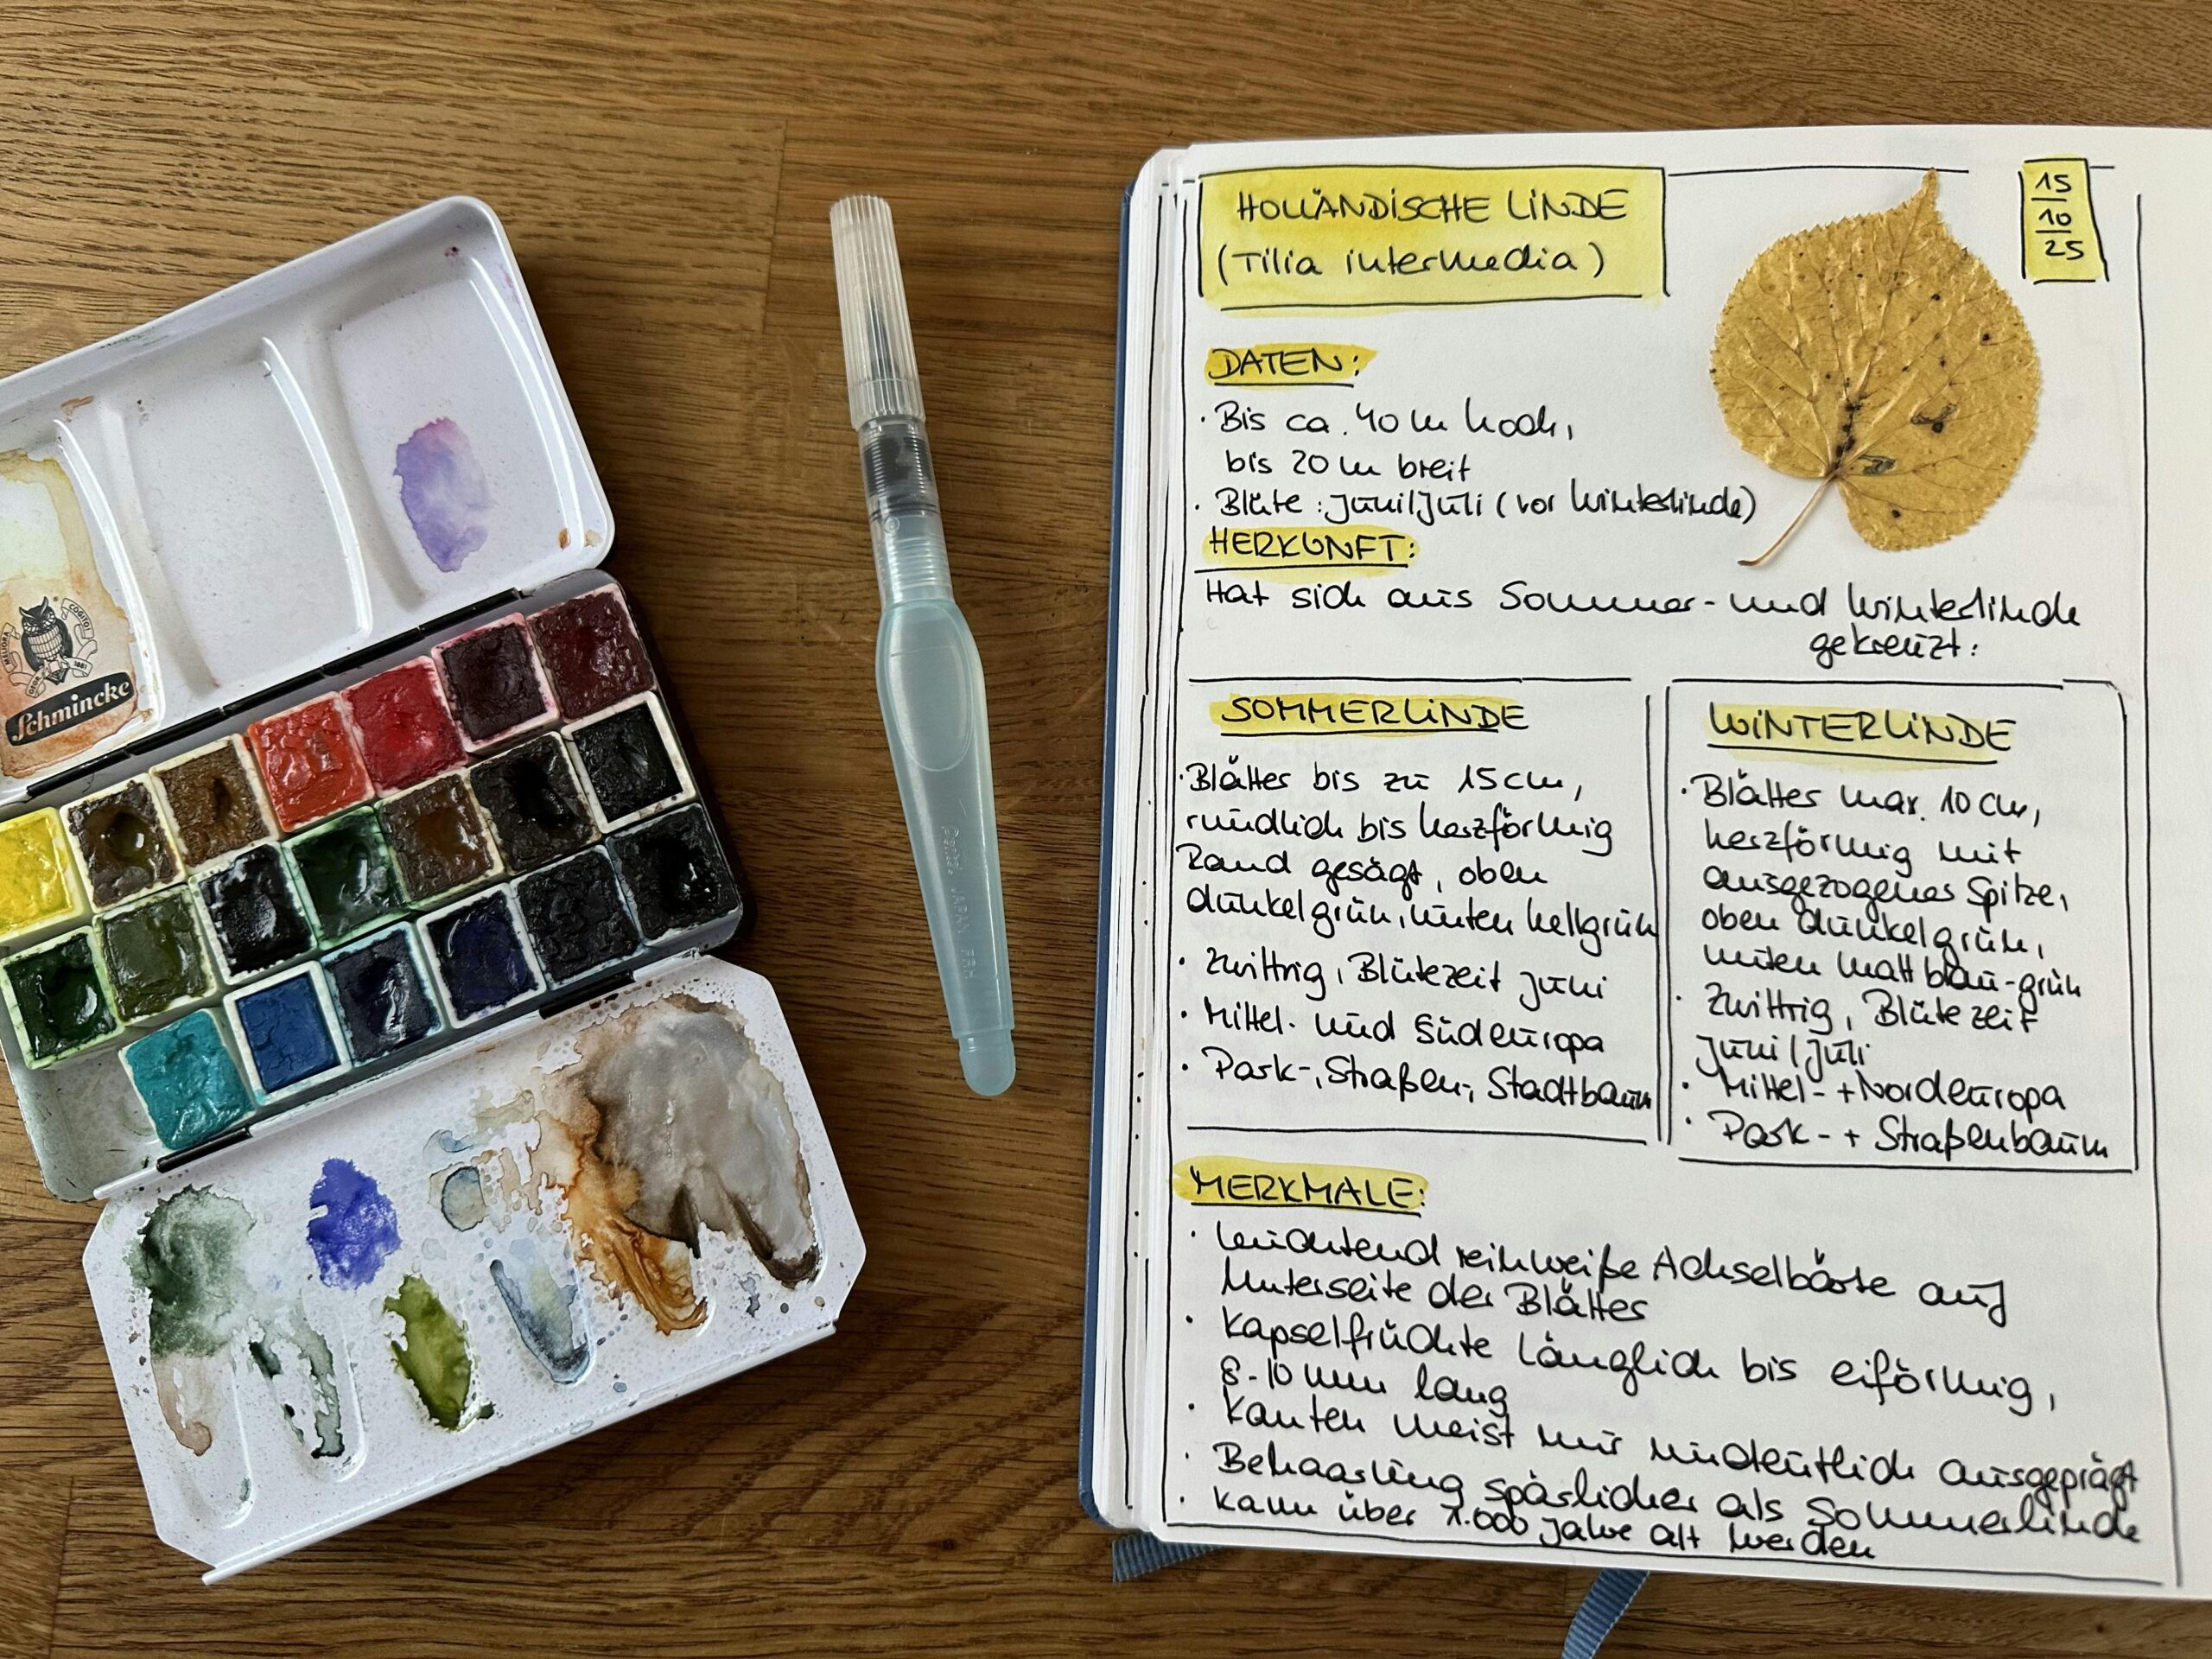 HOLLÄNDISCHE LINDE
(Tilia intermedia)
15
10
25
DATEN:
· Bis ca. 40 m hoch,
bis 20 m breit
· Blüte: Juni/Juli (vor Winterlinde)
HERKUNFT:
Hat sich aus Sommer- und Winterlinde
gekreuzt:
SOMMERLINDE
· Blätter bis zu 15 cm,
rundlich bis herzförmig
Rand gesägt, oben
dunkelgrün, unten hellgrün
· Zwittrig, Blütezeit Juni
· Mittel- und Südeuropa
· Park-, Straßen-, Stadtbaum
WINTERLINDE
· Blätter max. 10 cm,
herzförmig mit
ausgezogener Spitze,
oben dunkelgrün,
unten matt blau-grün
· Zwittrig, Blütezeit
Juni/Juli
· Mittel- + Nordeuropa
· Park- + Straßenbaum
MERKMALE:
· leuchtend reinweiße Achselbärte auf
Unterseite der Blätter
· Kapselfrüchte länglich bis eiförmig,
8-10 mm lang
· Kanten meist nur undeutlich ausgeprägt
· Behaarung spärlicher als Sommerlinde
· kann über 1.000 Jahre alt werden
MELIORA
COGITO
1881
Schmincke
Pentel JAPAN